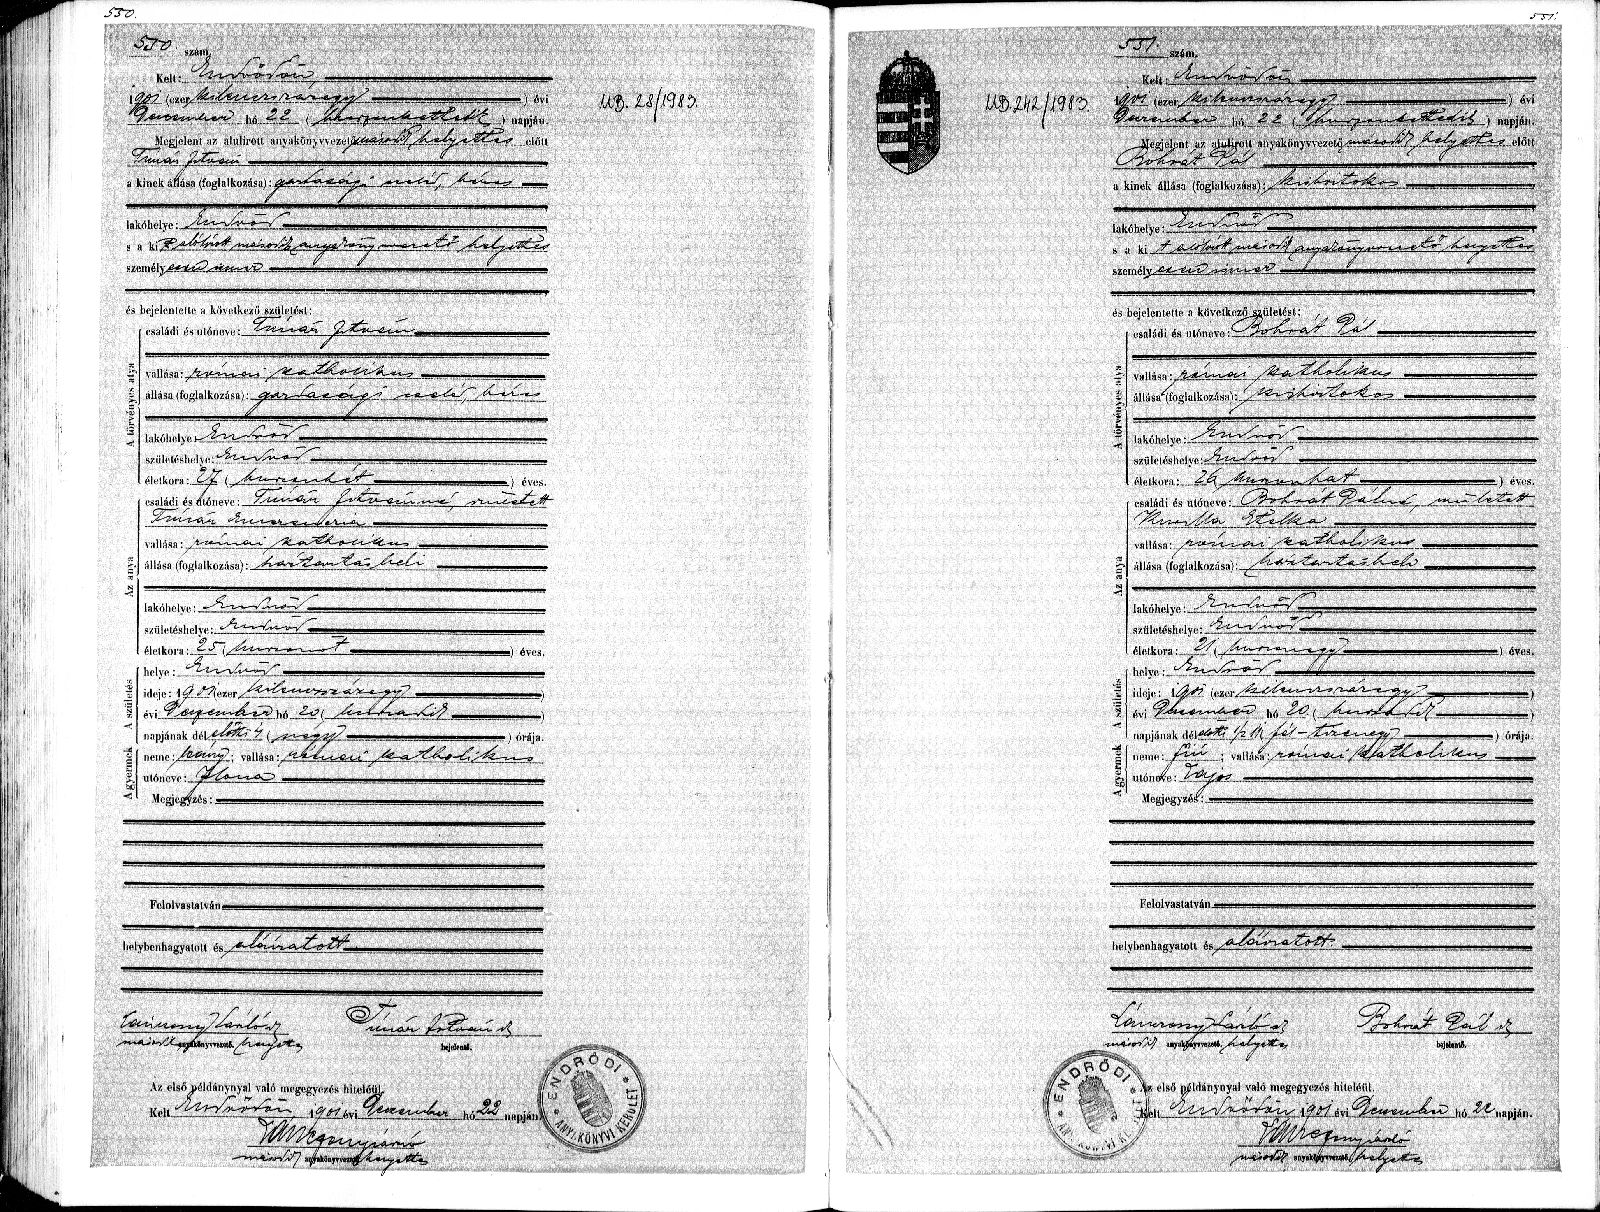 550.
550 szám.
Kelt: Endrődön,
1901 (ezer kilenczszázegy) évi
December hó 22 (huszonkettedik) napján.
Megjelent az alulirott anyakönyvvezető második helyettes előtt
Tímár István
a kinek állása (foglalkozása): gazdasági cseléd, béres
lakóhelye: Endrőd
s a kit alólírott második anyakönyvvezető helyettes
személyesen ismer
és bejelentette a következő születést:
A törvényes atya
családi és utóneve: Tímár István
vallása: római katholikus
állása (foglalkozása): gazdasági cseléd, béres
lakóhelye: Endrőd
születéshelye: Endrőd
életkora: 27 (huszonhét) éves.
Az anya
családi és utóneve: Tímár Istvánné, született
Tímár
vallása: római katholikus
állása (foglalkozása): háztartásbeli
lakóhelye: Endrőd
születéshelye: Endrőd
életkora: 25 (huszonöt) éves.
A születés
helye: Endrőd
ideje: 1901 (ezer kilenczszázegy)
évi December hó 20 (huszadik)
napjának délelőtti 4 (négy) órája.
A gyermek
neme: leány; vallása: római katholikus
utóneve: Ilona
Megjegyzés:
Felolvastatván
helybenhagyatott és aláíratott
Tímár István
második anyakönyvvezető, helyettes
bejelentő.
Az első példánynyal való megegyezés hiteléül.
Kelt Endrődön, 1901 évi December hó 22 napján.
második anyakönyvvezető helyettes
ENDRŐDI ANYAKÖNYVI KERÜLET
UB. 28/1983.
551.
551. szám.
UB. 242/1983.
Kelt: Endrődön
1901 (ezer kilenczszázegy) évi
December hó 22 (huszonkettedik) napján.
Megjelent az alulirott anyakönyvvezető második helyettes előtt
Bohrát Pál
a kinek állása (foglalkozása): kisbirtokos
lakóhelye: Endrőd
s a kit alólírott második anyakönyvvezető helyettes
személyesen ismer
és bejelentette a következő születést:
A törvényes atya
családi és utóneve: Bohrát Pál
vallása: római katholikus
állása (foglalkozása): kisbirtokos
lakóhelye: Endrőd
születéshelye: Endrőd
életkora: 26 (huszonhat) éves.
Az anya
családi és utóneve: Bohrát Pálné, született
Etelka
vallása: római katholikus
állása (foglalkozása): háztartásbeli
lakóhelye: Endrőd
születéshelye: Endrőd
életkora: 21 (huszonegy) éves.
A születés
helye: Endrőd
ideje: 1901 (ezer kilenczszázegy)
évi December hó 20 (huszadik)
napjának délelőtti órája.
A gyermek
neme: fiú; vallása: római katholikus
utóneve: Lajos
Megjegyzés:
Felolvastatván
helybenhagyatott és aláíratott
Bohrát Pál
második anyakönyvvezető, helyettes
bejelentő.
Az első példánynyal való megegyezés hiteléül.
Kelt Endrődön 1901 évi December hó 22 napján.
második anyakönyvvezető, helyettes
ENDRŐDI ANYAKÖNYVI KERÜLET